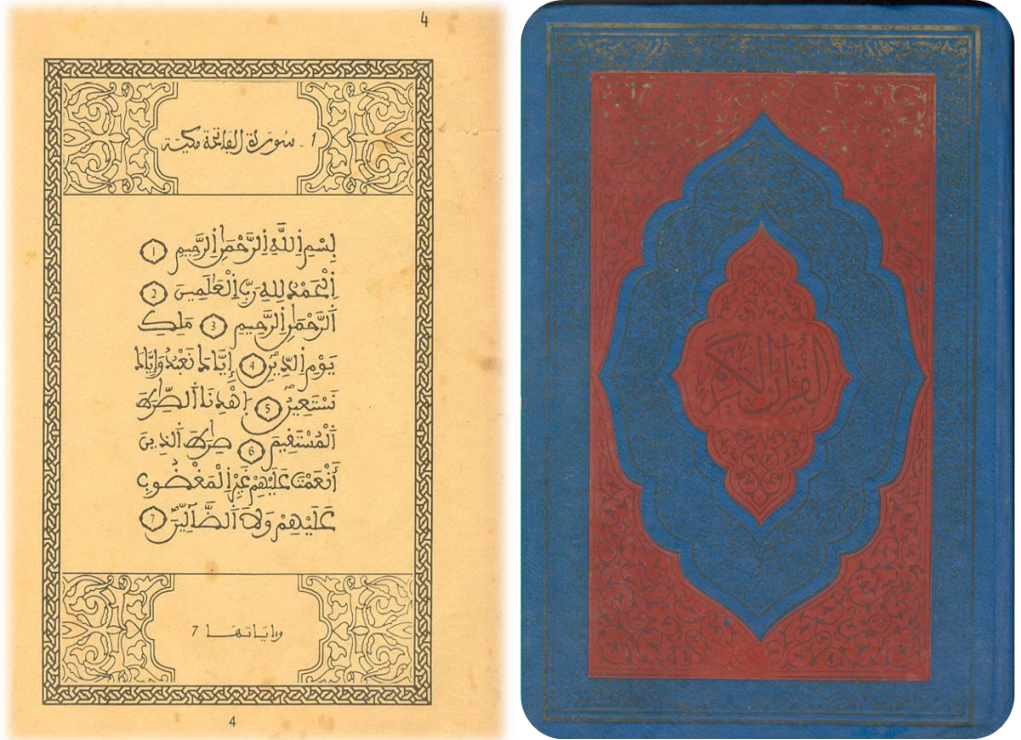 4
1 - سُورَة الفاتحة مكيّة
بِسْمِ اِللَّهِ اِلرَّحْمَٰنِ اِلرَّحِيمِ 1
اِلْحَمْدُ لِلهِ رَبِّ اِلْعَٰلَمِينَ 2
اَلرَّحْمَٰنِ اِلرَّحِيمِ 3 مَلِكِ
يَوْمِ اِلدِّينِ 4 إِيَّاكَ نَعْبُدُ وَإِيَّاكَ
نَسْتَعِينُ 5 اِهْدِنَا اَلصِّرَٰطَ
اَلْمُسْتَقِيمَ 6 صِرَٰطَ اَلذِينَ
أَنْعَمْتَ عَلَيْهِمْ غَيْرِ اِلْمَغْضُوبِ
عَلَيْهِمْ وَلَا اَلضَّآلِّينَ 7
وءاياتها 7
4
القرآن الكريم